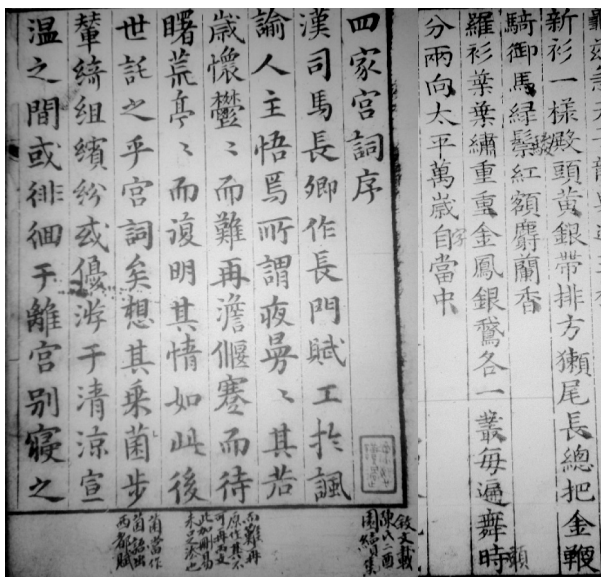 新衫一樣殿頭黃銀帶排方獺尾長總把金鞭
騎御馬綠鬃紅額麝蘭香
羅衫葉葉繡重重金鳳銀鵞各一叢每遍舞時
分兩向太平萬歲自當中
四家宮詞序
漢司馬長卿作長門賦工於諷
諭人主悟焉所謂夜曼〻其若
歲懷鬱〻而難再澹偃蹇而待
曙荒亭〻而復明其情如此後
世託之乎宮詞矣想其乘菌步
輦綺組繽紛或優游于清涼宣
温之間或徘徊于離宮別寢之
敘文載
陳氏二酉
園續集
菌當作
茵語出
西都賦